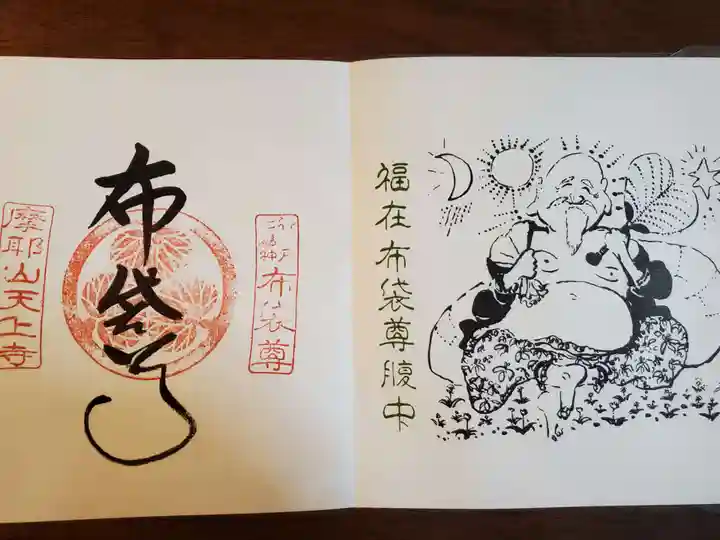 福在布袋尊腹中
布袋尊
布袋尊
摩耶山天上寺